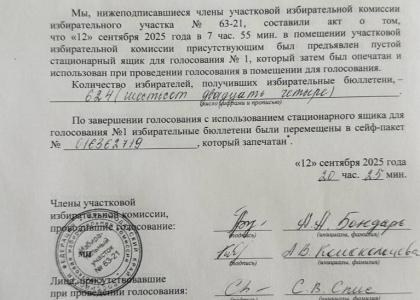 Мы, нижеподписавшиеся члены участковой избирательной комиссии
избирательного участка № 63-21, составили акт о том,
что «12» сентября 2025 года в 7 час. 55 мин. в помещении участковой
избирательной комиссии присутствующим был предъявлен пустой
стационарный ящик для голосования № 1, который затем был опечатан и
использован при проведении голосования в помещении для голосования.
Количество избирателей, получивших избирательные бюллетени, –
624 (шестсот двадцать четыре)
(число цифрами и прописью)
По завершении голосования с использованием стационарного ящика для
голосования №1 избирательные бюллетени были перемещены в сейф-пакет
№ 016362719, который запечатан*.
«12» сентября 2025 года
20 час. 25 мин.
Члены участковой
избирательной комиссии,
проводившие голосование:
(подпись) А.А. Бондарь (инициалы, фамилия)
(подпись) А.В. (инициалы, фамилия)
МП
№ 63-21
Лица, присутствовавшие
при проведении голосования:
(подпись) С.В. (инициалы, фамилия)